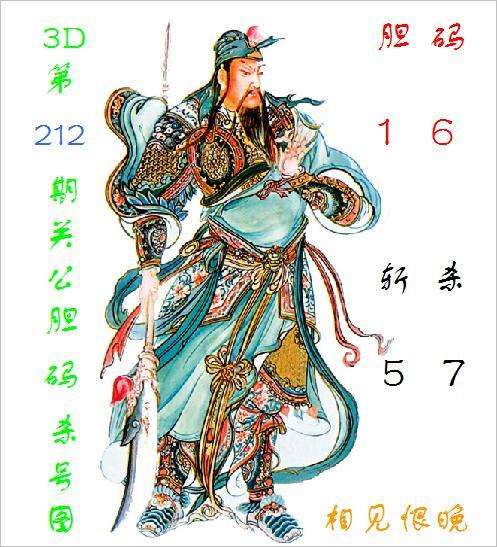 3D
第
212
期
关
公
胆
码
杀
号
图
胆 码
1 6
斩 杀
5 7
相见恨晚